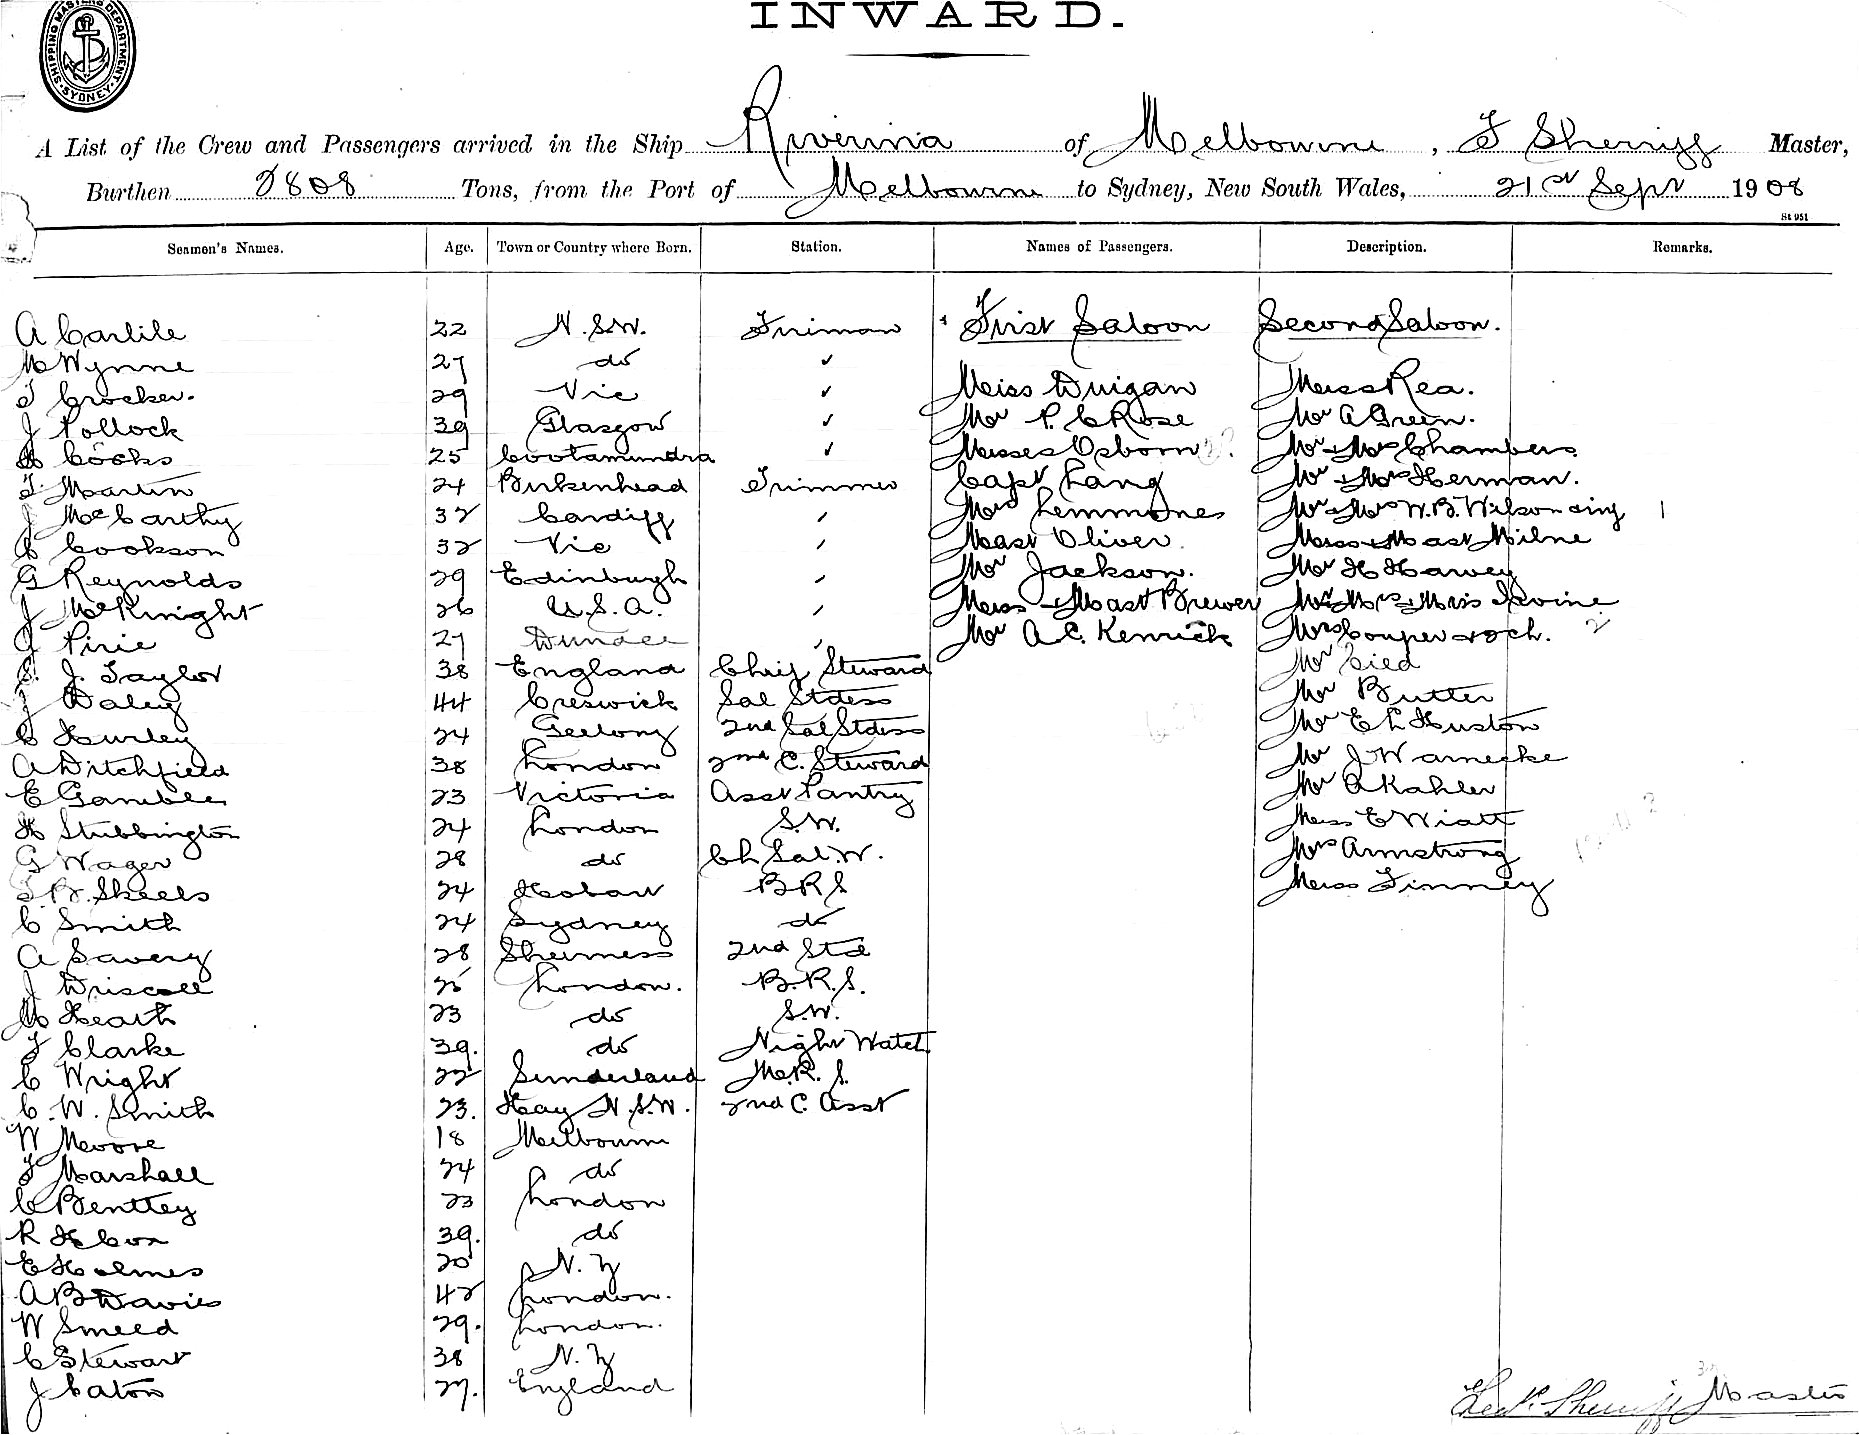 INWARD.
SHIPPING MASTERS DEPARTMENT. SYDNEY.
A List of the Crew and Passengers arrived in the Ship Riverina of Melbourne, F Sherriff Master,
Burthen 2808 Tons, from the Port of Melbourne to Sydney, New South Wales, 21st Sept 1908
St 951
Seamen's Names. Age. Town or Country where Born. Station. Names of Passengers. Description. Remarks.
A Carlile 22 N.S.W. Fireman First Saloon Second Saloon.
M Wynne 27 do ✓
T Crocker. 29 Vic ✓ Miss Duigan Miss Rea.
J Pollock 39 Glasgow ✓ Mr P. C Rose Mr A Green.
Cocks 25 Cootamundra ✓ Misses Osborn Mr & Mrs Chambers
T Martin 24 Birkenhead Trimmer Capt Lang Mr & Mrs Herman.
J McCarthy 32 Cardiff Mrs Lemmones Mr & Mrs W.B. Wilson
C Cookson 32 Vic Mast Oliver Miss & Mast Milne
G Reynolds 29 Edinburgh Mr Jackson. Mr H Harvey
J McKnight 26 U.S.A. Miss & Mast Brewer Mr Mrs & Miss Irvine
J Pirie 27 Dundee Mr A C. Kenrick Mrs Couper & 2 ch.
E. J. Taylor 38 England Chief Steward Mr
J Daley 44 Creswick Sal Stdess Mr Butter
C Hurley 24 Geelong 2nd Sal Stdess Mr E L Huston
A Ditchfield 38 London 2nd C. Steward Mr J Warnecke
E Gambles 23 Victoria Asst Pantry Mr A Kahler
H Stubbington 24 London S.W. Miss E Wiatt
G Wager 28 do Ch Sal. W. Mrs Armstrong
T.B. Skeels 24 Hobart B R S Miss Finney
C Smith 24 Sydney do
A Savery 28 Sheerness 2nd Std
J Driscoll 25 London. B.R.S.
M Heath 23 do S.W.
F Clarke 39. do Night Watch
C Wright 22 Sunderland M.R.S.
C. W. Smith 23. Hay N.S.W. 2nd C. Asst
W Moore 18 Melbourne
F Marshall 24 do
C Benttey 23 London
R H Cox 39. do
E Holmes 20 N. Z
A B Davies 42 London.
W Smeed 29. London.
C Stewart 38 N. Z
J Caton 27. England
Fredk. Sherriff Master